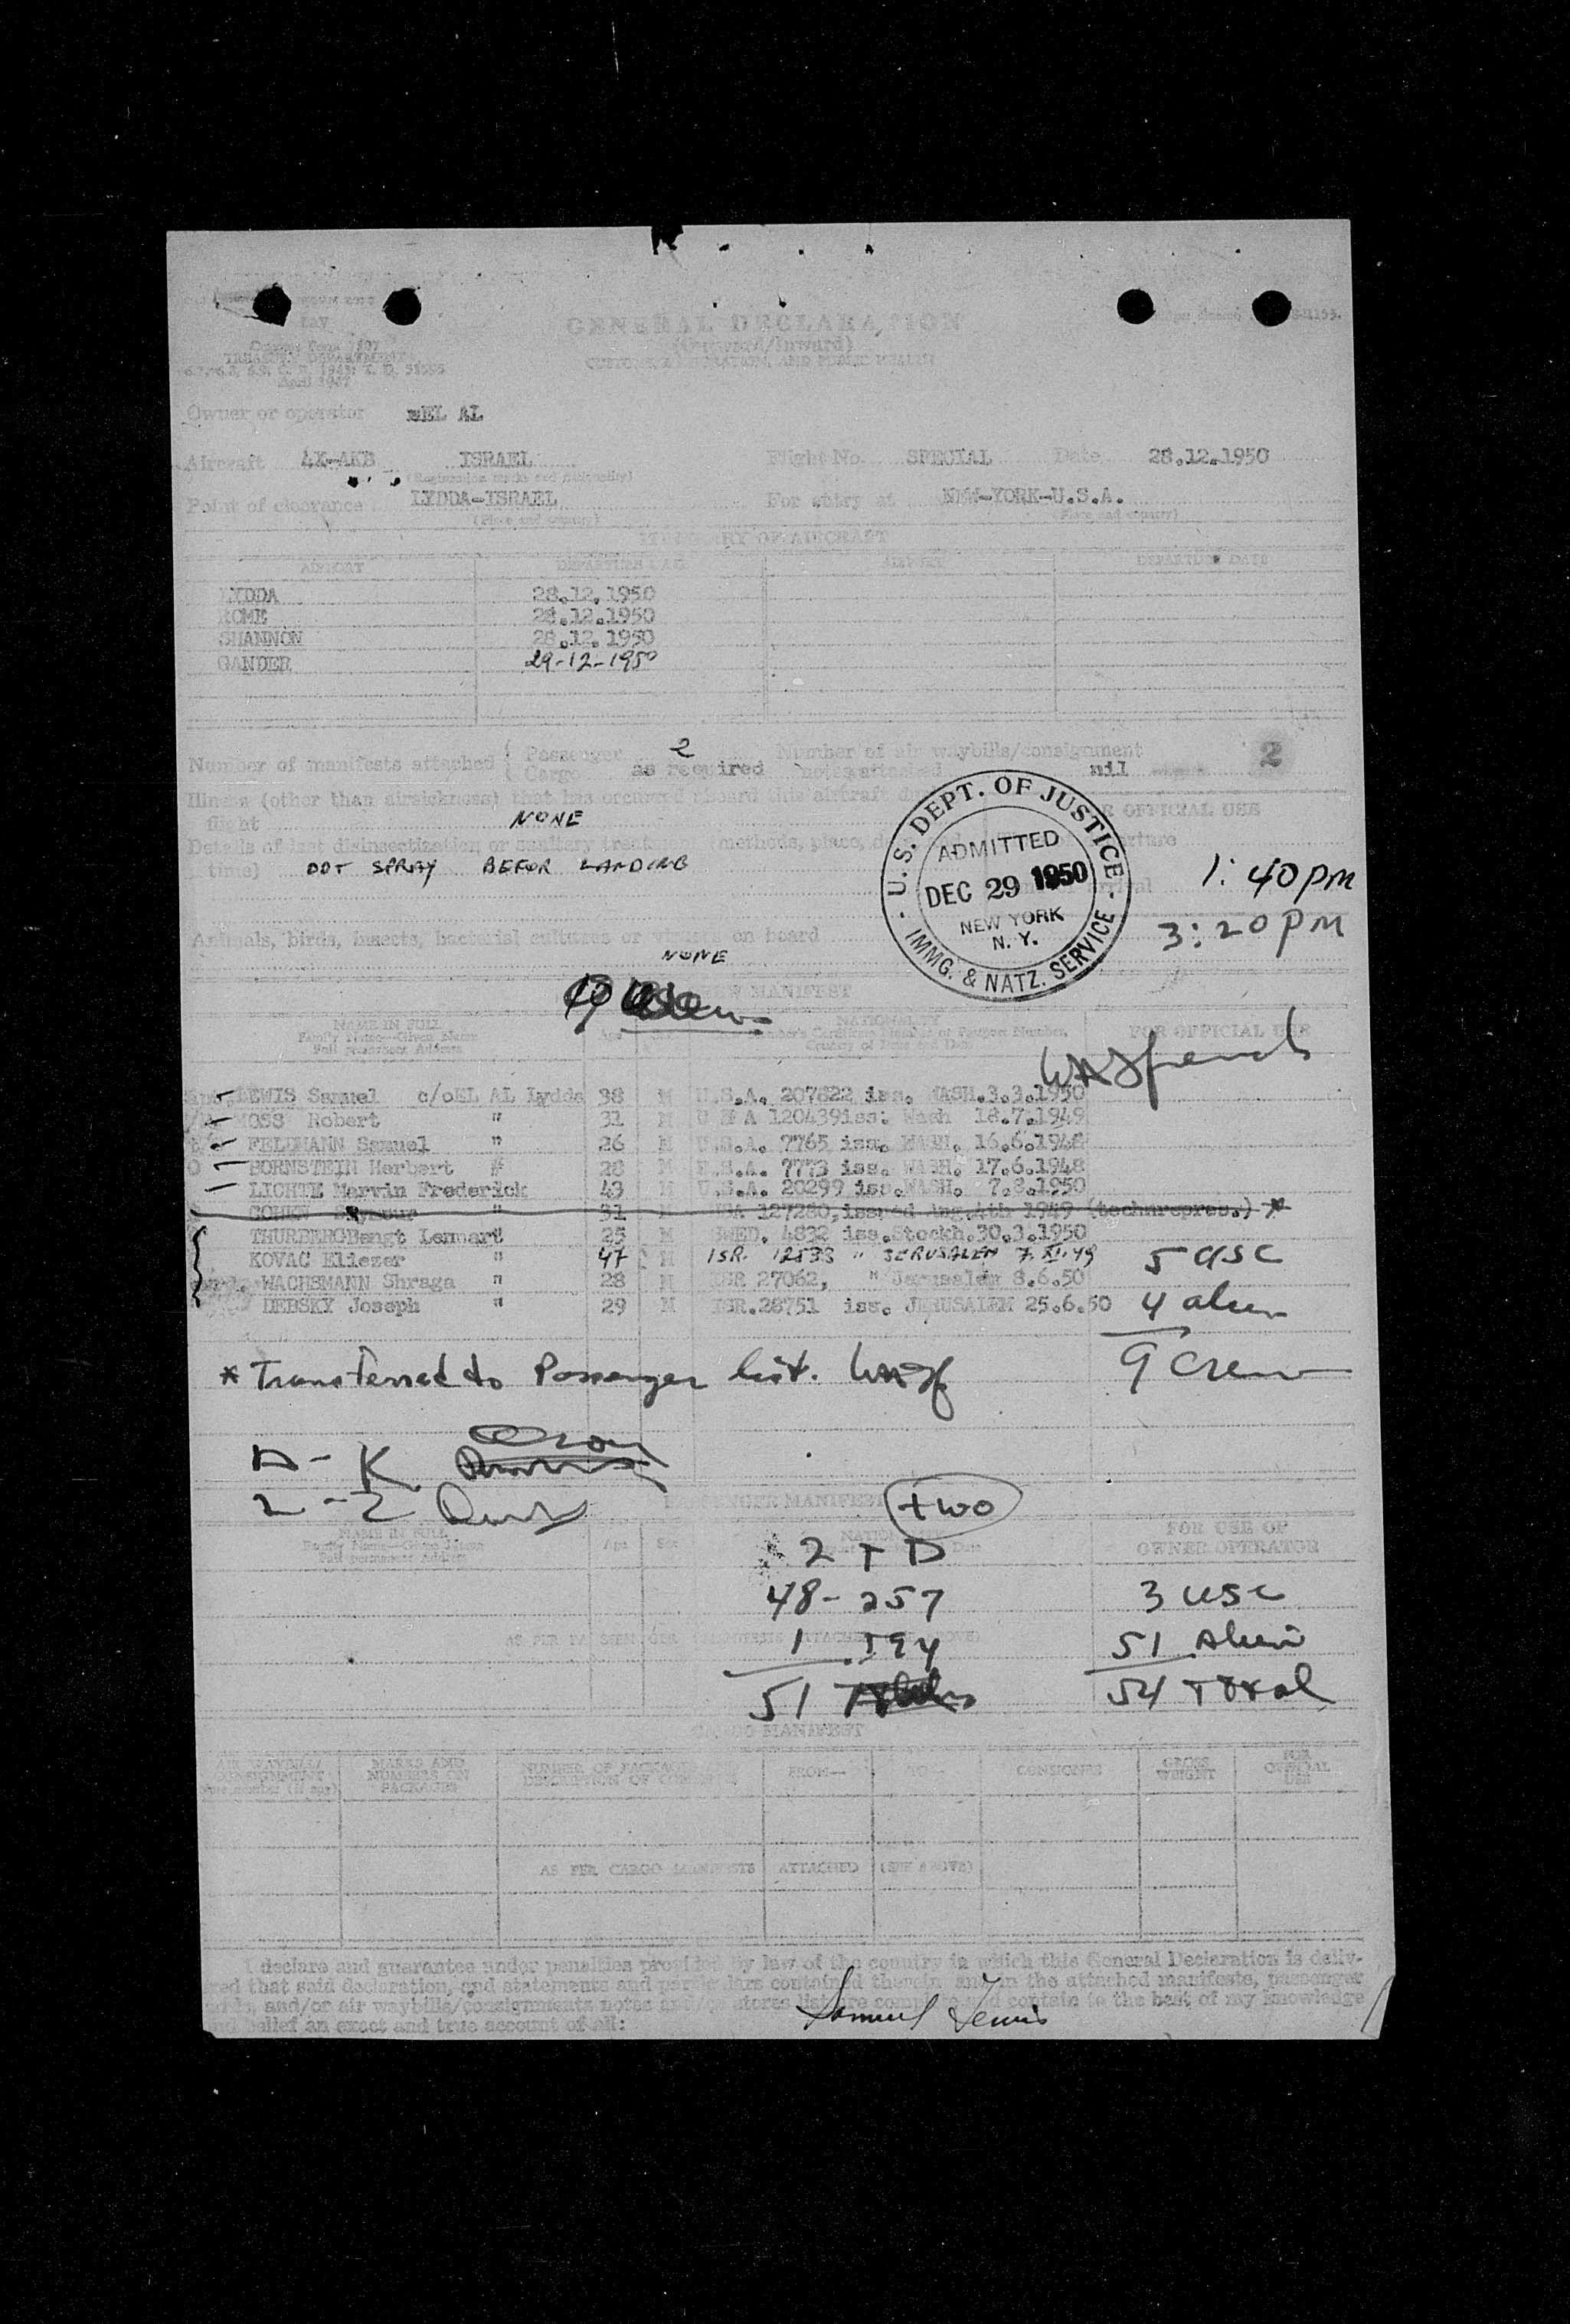 GENERAL DECLARATION
(Outward/Inward)
CUSTOMS, IMMIGRATION, AND PUBLIC HEALTH
TREASURY DEPARTMENT
April 1947
Owner or operator EL AL
Aircraft 4X-AKB ISRAEL Flight No. SPECIAL Date 28.12.1950
(Registration marks and nationality)
Point of clearance LYDDA-ISRAEL For entry at NEW-YORK-U.S.A.
(Place and country) (Place and country)
ITINERARY OF AIRCRAFT
AIRPORT DEPARTURE DATE AIRPORT DEPARTURE DATE
LYDDA 28.12.1950
ROME 28.12.1950
SHANNON 28.12.1950
GANDER 29-12-1950
Number of manifests attached { Passenger 2 Number of air waybills/consignment 2
Cargo as required notes attached nil
Illness (other than airsickness) that has occurred aboard this aircraft FOR OFFICIAL USE
flight NONE
Details of last disinsectization or sanitary treatment (methods, place,
time) DDT SPRAY BEFOR LANDING
U.S. DEPT. OF JUSTICE
ADMITTED
DEC 29 1950
NEW YORK
N. Y.
IMMG. & NATZ. SERVICE
1:40 PM
3:20 PM
Animals, birds, insects, bacterial cultures or viruses on board
NONE
CREW MANIFEST
NAME IN FULL
Family Name—Given Name
Full permanent Address
Age
NATIONALITY
FOR OFFICIAL USE
LEWIS Samuel c/o EL AL Lydda 38 M U.S.A. 207822 iss. WASH. 3.3.1950
MOSS Robert " 31 M U S A 120439 iss: Wash 18.7.1949
FELDMANN Samuel " 26 M U.S.A. 7765 iss. WASH. 16.6.1948
BORNSTEIN Herbert " 28 M U.S.A. 7773 iss. WASH. 17.6.1948
LICHTE Marvin Frederick 43 M U.S.A. 20299 iss. WASH. 7.8.1950
COHEN Seymour " 31 M USA 127280, issued Aug. 4th 1949 (techn.repres.) *
THURBERG Bengt Lennart " 25 M SWED. 4832 iss. Stockh. 30.3.1950
KOVAC Eliezer " 47 M ISR. 12533 " JERUSALEM 7.XI.49 5 USC
WACHSMANN Shraga " 28 M ISR 27062, " Jerusalem 8.6.50
DEBSKY Joseph " 29 M ISR. 28751 iss. JERUSALEM 25.6.50 4 alien
* Transferred to Passenger list. 9 Crew
A - K
L - Z
PASSENGER MANIFEST two
NAME IN FULL
Family Name—Given Name
Full permanent Address
Age Sex
FOR USE OF
OWNER OPERATOR
2 T D
48 - 257 3 USC
1 51 Alien
51 54 Total
CARGO MANIFEST
MARKS AND
NUMBERS ON
PACKAGES
FROM— TO— CONSIGNEE GROSS
WEIGHT FOR
OFFICIAL
USE
AS PER CARGO MANIFESTS ATTACHED (SEE ABOVE)
I declare and guarantee under penalties provided by law of the country in which this General Declaration is deliv-
ered that said declaration, and statements and particulars contained therein and in the attached manifests, passenger
and/or air waybills/consignments notes and/or stores list are complete and contain to the best of my knowledge
and belief an exact and true account of all:
Samuel Lewis